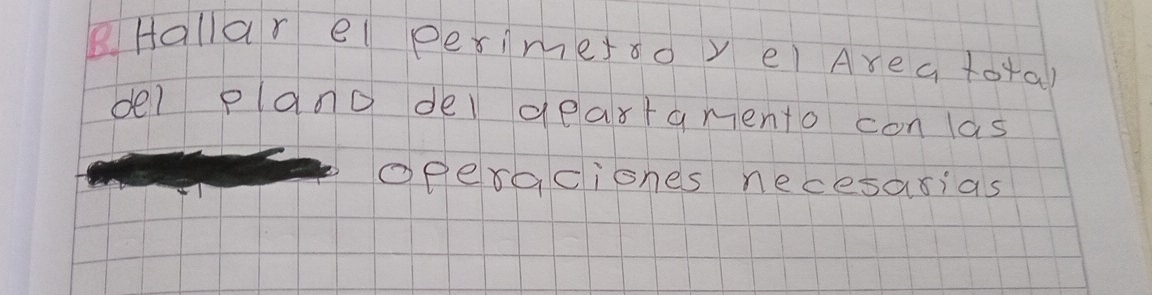 B. Hallar el Perimetro y el Area total
del plano del apartamento con las
operaciones necesarias